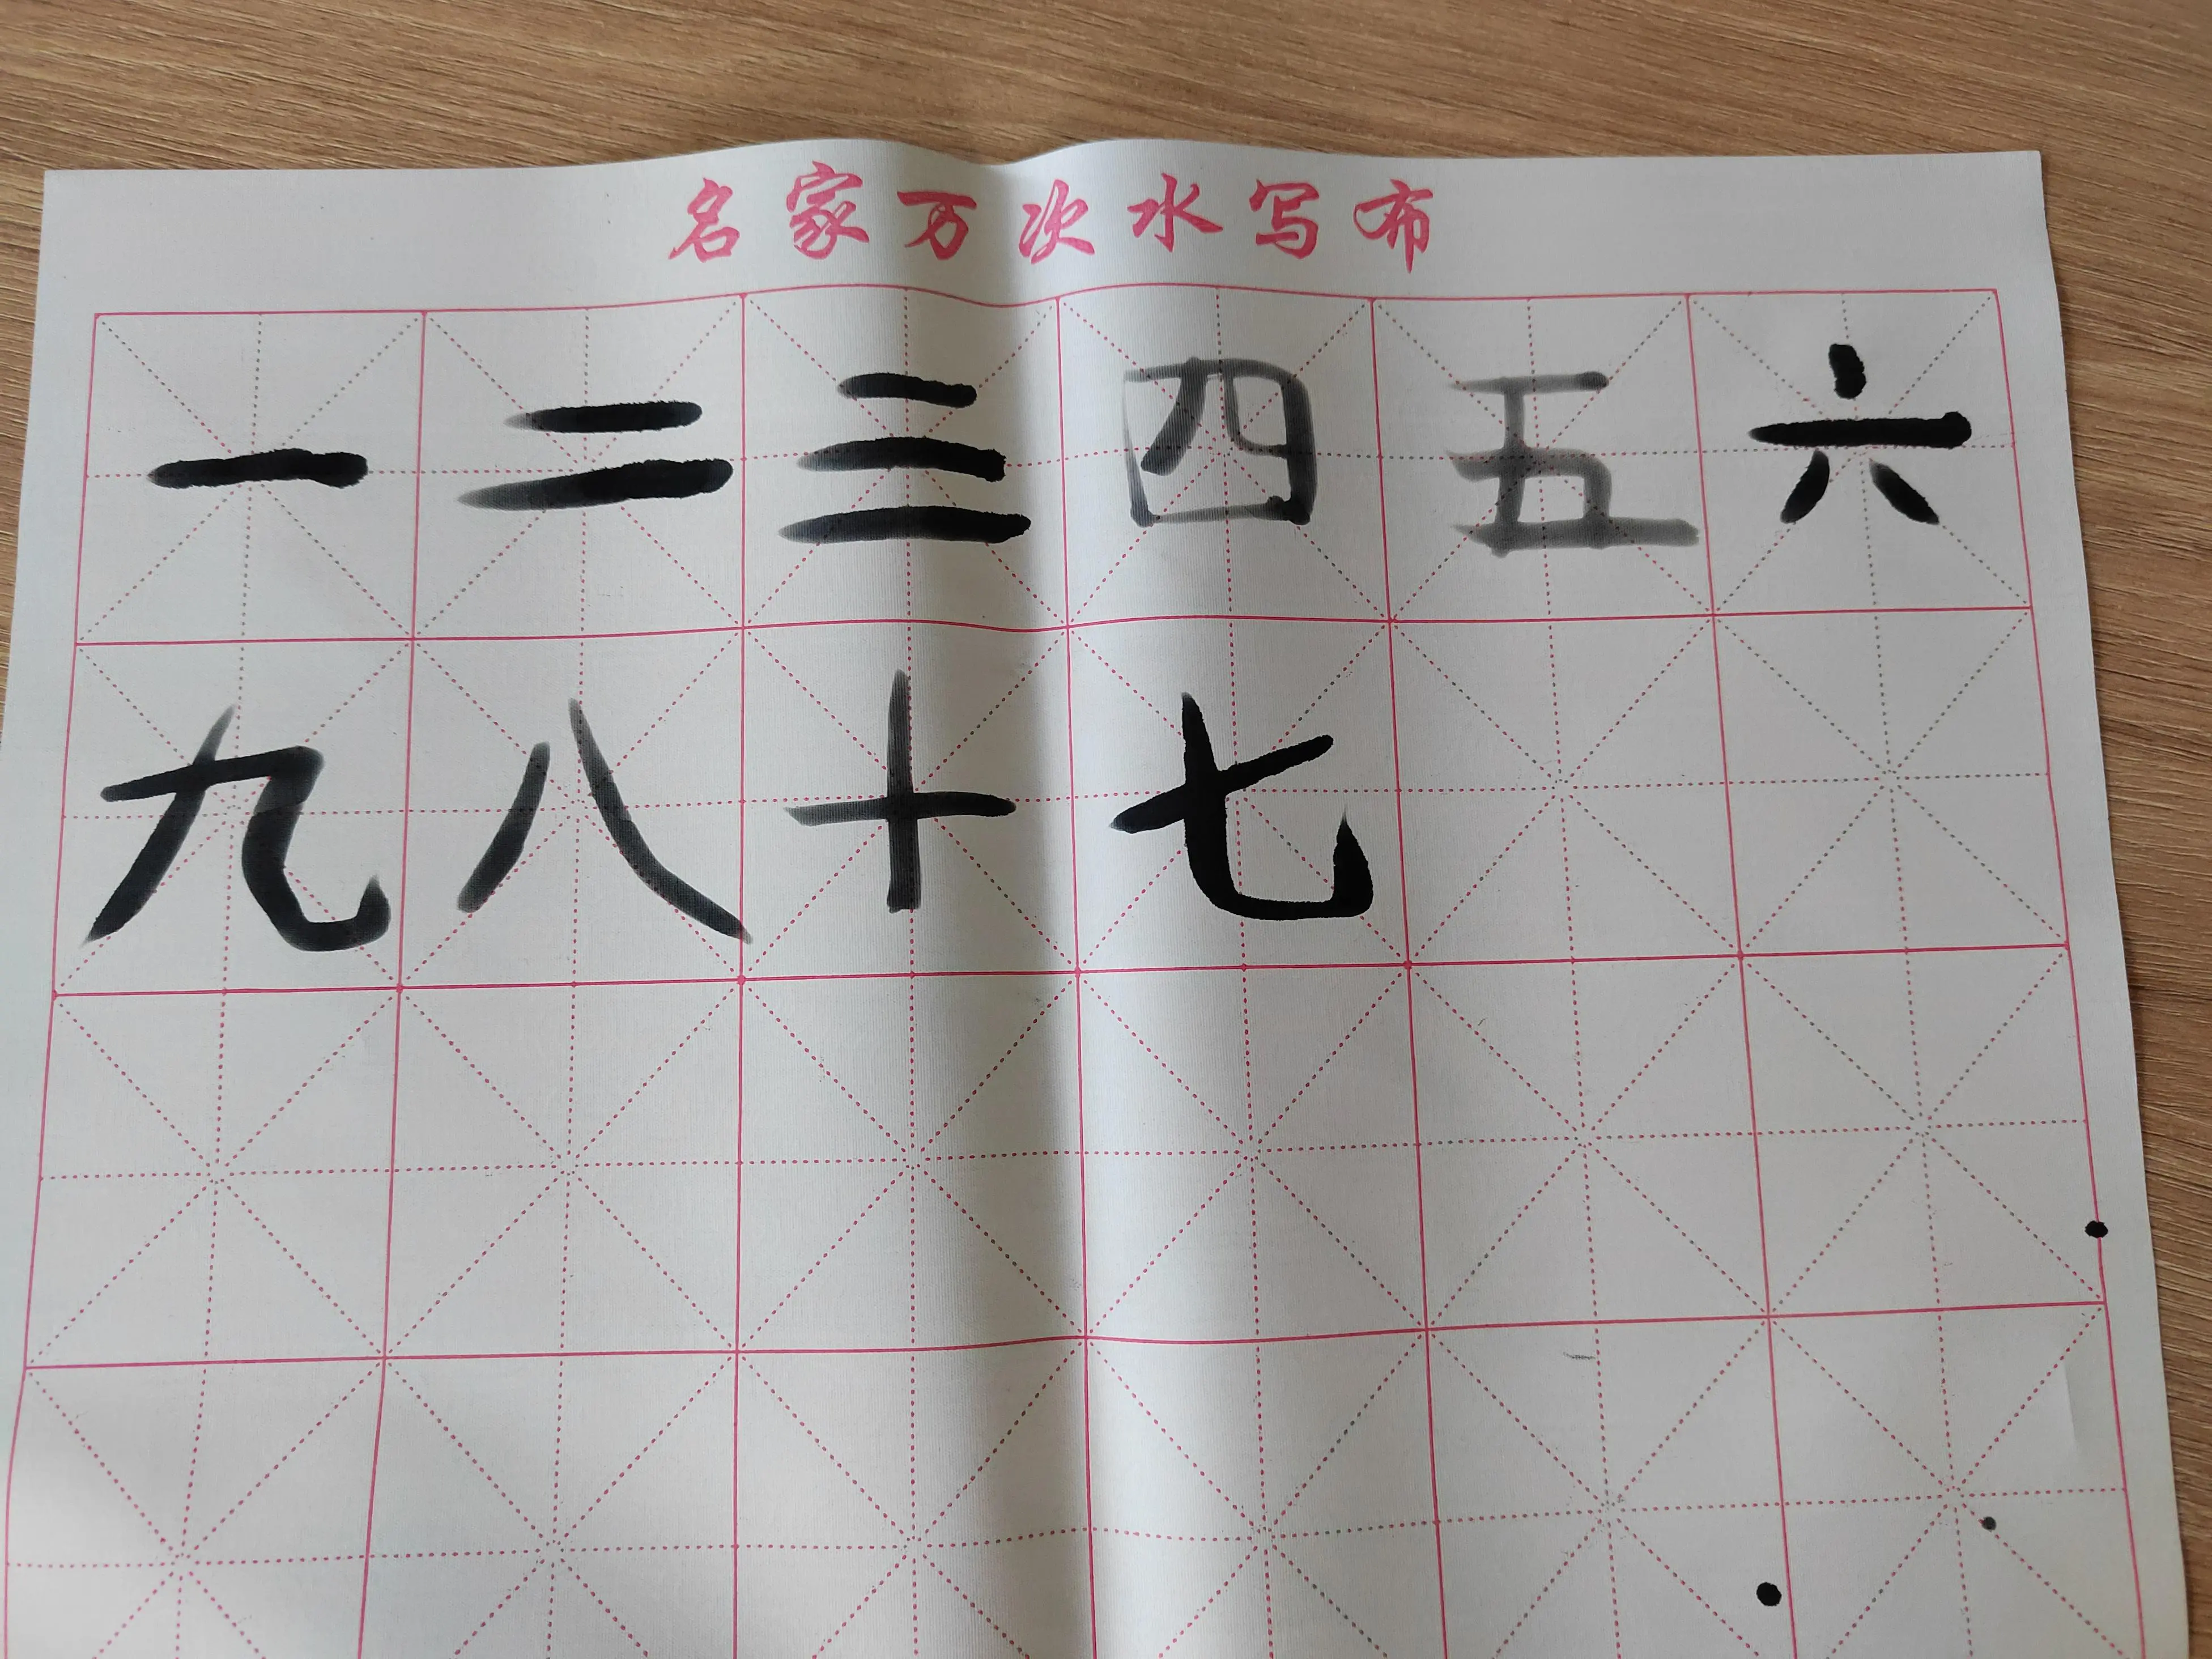 名家万次水写布
一二三四五六
九八十七